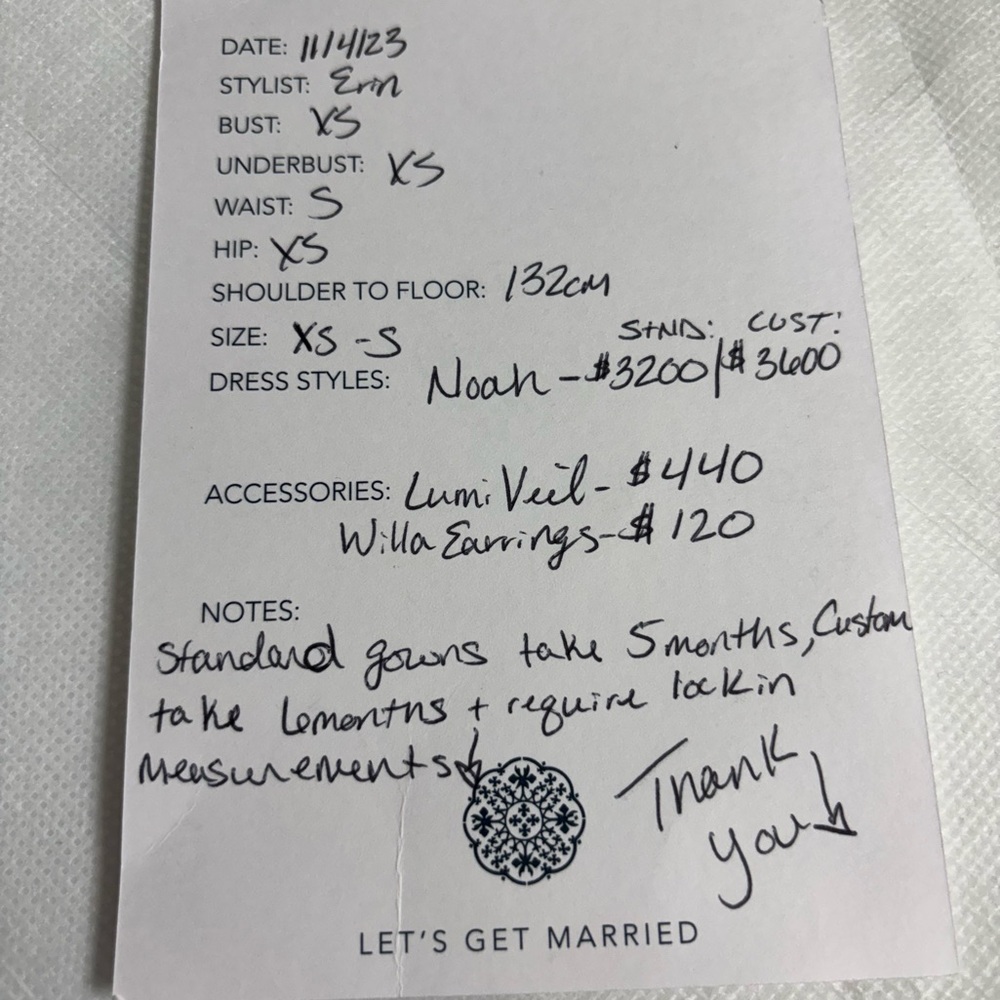 DATE: 11/4/23
STYLIST: Erin
BUST: XS
UNDERBUST: XS
WAIST: S
HIP: XS
SHOULDER TO FLOOR: 132cm
SIZE: XS - S
STND: CUST:
DRESS STYLES: Noah - $3200/$3600
ACCESSORIES: Lumi Veil - $440
Willa Earrings - $120
NOTES:
Standard gowns take 5 months, Custom
take 6 months + require lock in
measurements
Thank
you
LET'S GET MARRIED